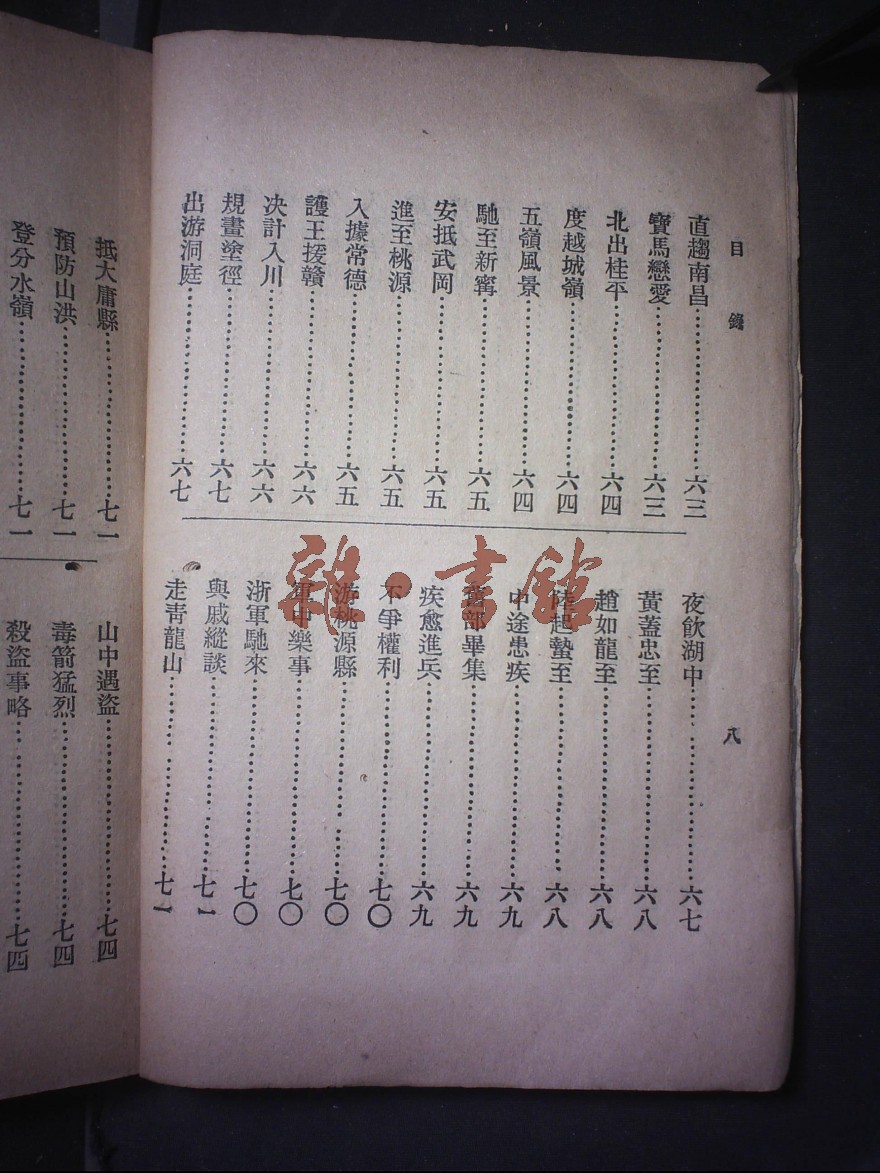 目錄
八
直趨南昌……六三
寶馬戀愛……六三
北出桂平……六四
度越城嶺……六四
五嶺風景……六四
馳至新寗……六五
安抵武岡……六五
進至桃源……六五
入據常德……六五
護王援贛……六六
決計入川……六六
規畫塗徑……六七
出游洞庭……六七
夜飲湖中……六七
黃蓋忠至……六八
趙如龍至……六八
陸起蟄至……六八
中途患疾……六九
舊部畢集……六九
疾愈進兵……六九
不爭權利……七〇
游桃源縣……七〇
軍中樂事……七〇
浙軍馳來……七〇
與戚縱談……七一
走靑龍山……七一
抵大庸縣……七一
預防山洪……七一
登分水嶺……七一
山中遇盜……七四
毒箭猛烈……七四
殺盜事略……七四
雜·書館